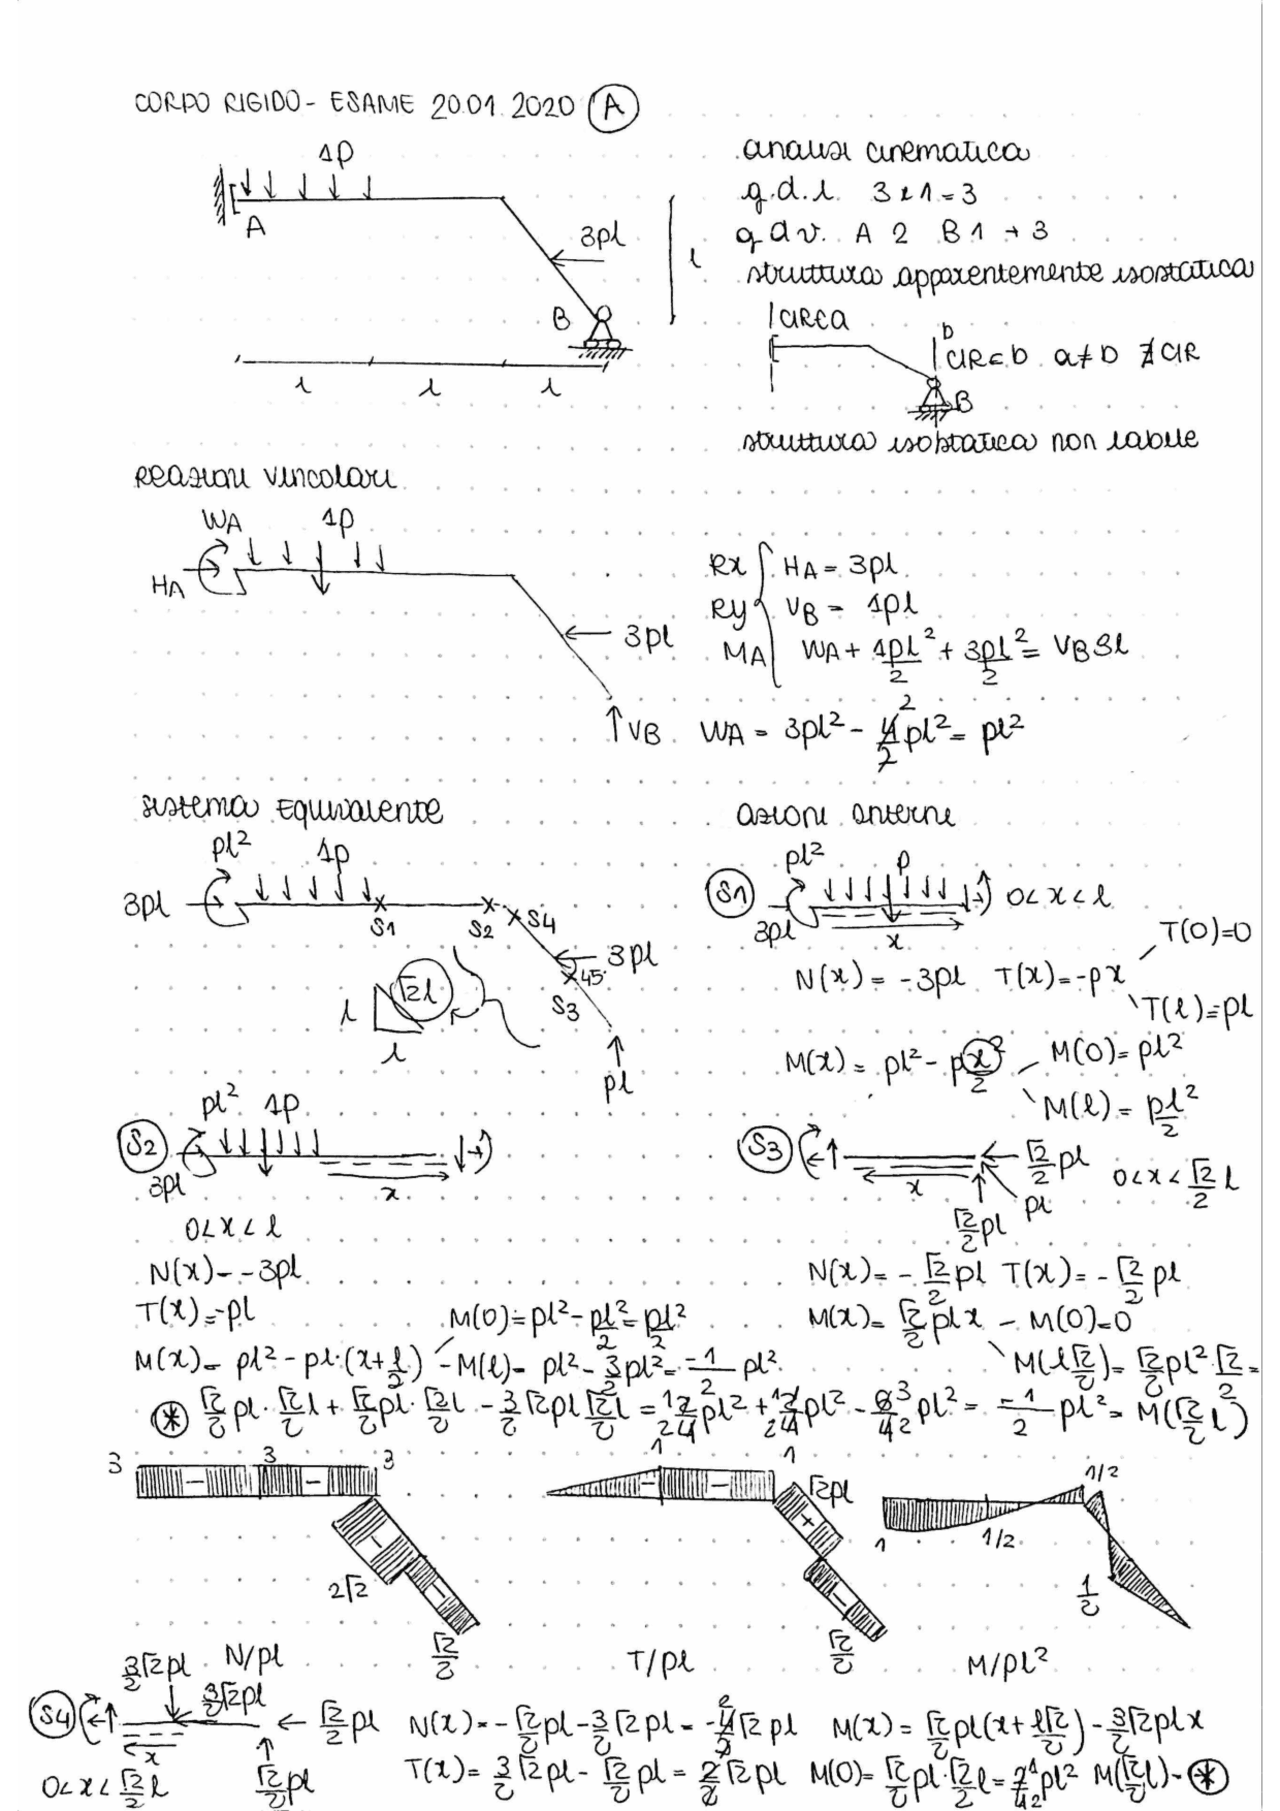 CORPO RIGIDO - ESAME 20.01.2020 (A)
1p
A
3pl
B
l
l
l
l
analisi cinematica
g.d.l. 3x1=3
g d v. A 2 B 1 → 3
struttura apparentemente isostatica
CIR∈a
b
CIR∈b a≠b ∄CIR
B
struttura isostatica non labile
Reazioni vincolari
WA 1p
HA
3pl
VB
Rx HA = 3pl
Ry VB = 1pl
MA WA + 1pl²/2 + 3pl²/2 = VB3l
WA = 3pl² - 4/2 pl² = pl²
sistema equivalente
pl² 1p
3pl
S1 S2 S4
3pl
45°
S3
√2l
l
l
pl
azioni interne
S1 pl² p 0<x<l
3pl
x
N(x) = -3pl T(x) = -px T(0)=0
T(l)=pl
M(x) = pl² - px²/2 M(0) = pl²
M(l) = pl²/2
S2 pl² 1p
3pl
x
0<x<l
N(x) = -3pl
T(x) = -pl
M(0) = pl² - pl²/2 = pl²/2
M(x) = pl² - pl·(x+l/2) M(l) = pl² - 3/2 pl² = -1/2 pl²
S3 √2/2 pl 0<x<√2/2 l
x pl
√2/2 pl
N(x) = -√2/2 pl T(x) = -√2/2 pl
M(x) = √2/2 plx - M(0)=0
M(l√2/2) = √2/2 pl²·√2/2 =
(*) √2/2 pl·√2/2 l + √2/2 pl·√2/2 l - 3/2 √2pl √2/2 l = 2/4 pl² + 2/4 pl² - 6/4 pl² = -1/2 pl² = M(√2/2 l)
3 3 3
2√2
√2/2
N/pl
1 1
√2pl
√2/2
T/pl
1/2
1 1/2
1/2
M/pl²
S4 3/2 √2pl
3/2 √2pl
√2/2 pl
x
√2/2 pl
0<x<√2/2 l
N(x) = -√2/2 pl - 3/2 √2pl = -4/2 √2 pl M(x) = √2/2 pl(x+l√2/2) - 3/2 √2plx
T(x) = 3/2 √2pl - √2/2 pl = 2/2 √2pl M(0) = √2/2 pl·√2/2 l = 2/4 pl² M(√2/2 l) = (*)